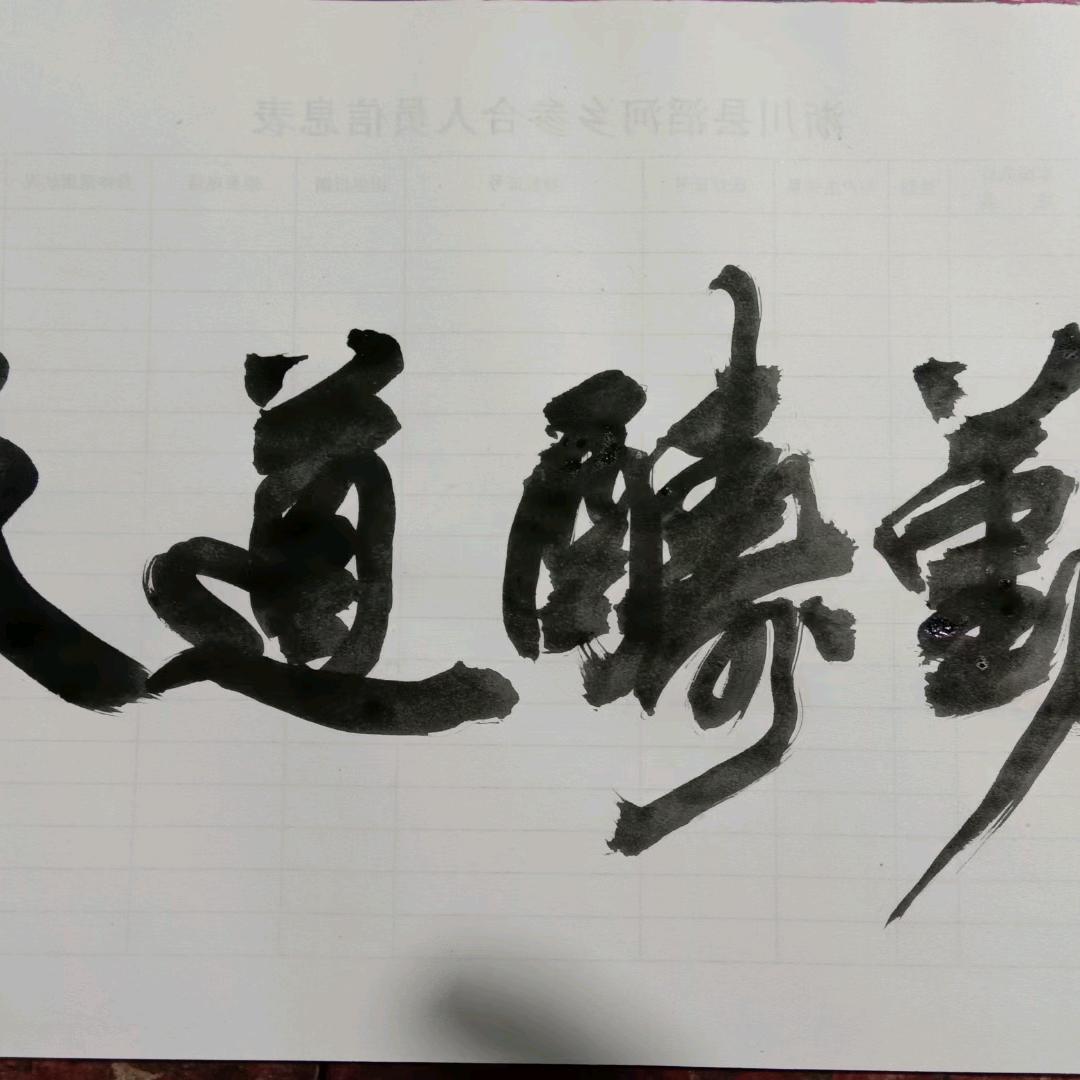 淅川县滔河乡参合人员信息表
天道醻勤